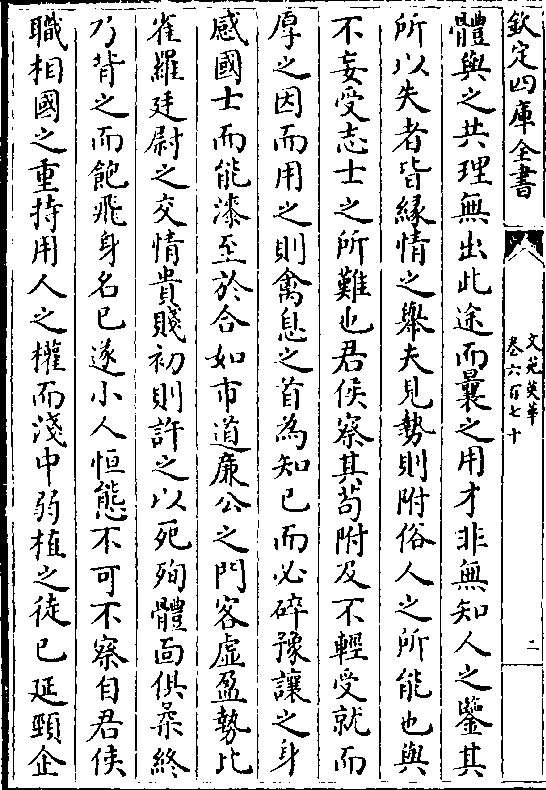 欽定四庫全書
文苑英華
卷六百七十
二
體與之共理無出此途而曩之用才非無知人之鑒其
所以失者皆緣情之舉夫見勢則附俗人之所能也與
不妄受志士之所難也君侯察其茍附及不輕受就而
厚之因而用之則禽息之首為知已而必碎豫讓之身
感國士而能漆至於合如市道廉公之門客虛盈勢比
雀羅廷尉之交情貴賤初則許之以死殉體面俱柔終
乃背之而飽飛身名已遂小人恒態不可不察自君侯
職相國之重持用人之權而淺中弱植之徒已延頸企